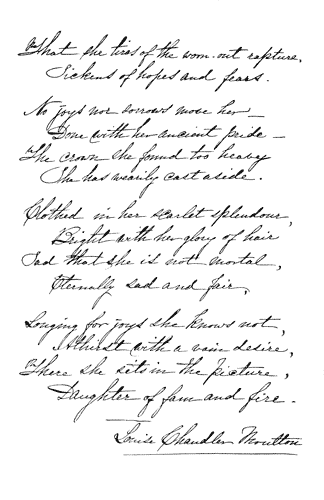 That she tires of the worn-out rapture,
Sickens of hopes and fears.
No joys nor sorrows move her—
Done with her ancient pride—
The crown she found too heavy
She has wearily cast aside.
Clothed in her scarlet splendour,
Bright with her glory of hair
Sad that she is not mortal,
Eternally sad and fair,
Longing for joys she knows not,
Athirst with a vain desire,
There she sits in the picture,
Daughter of foam and fire.
Louise Chandler Moulton